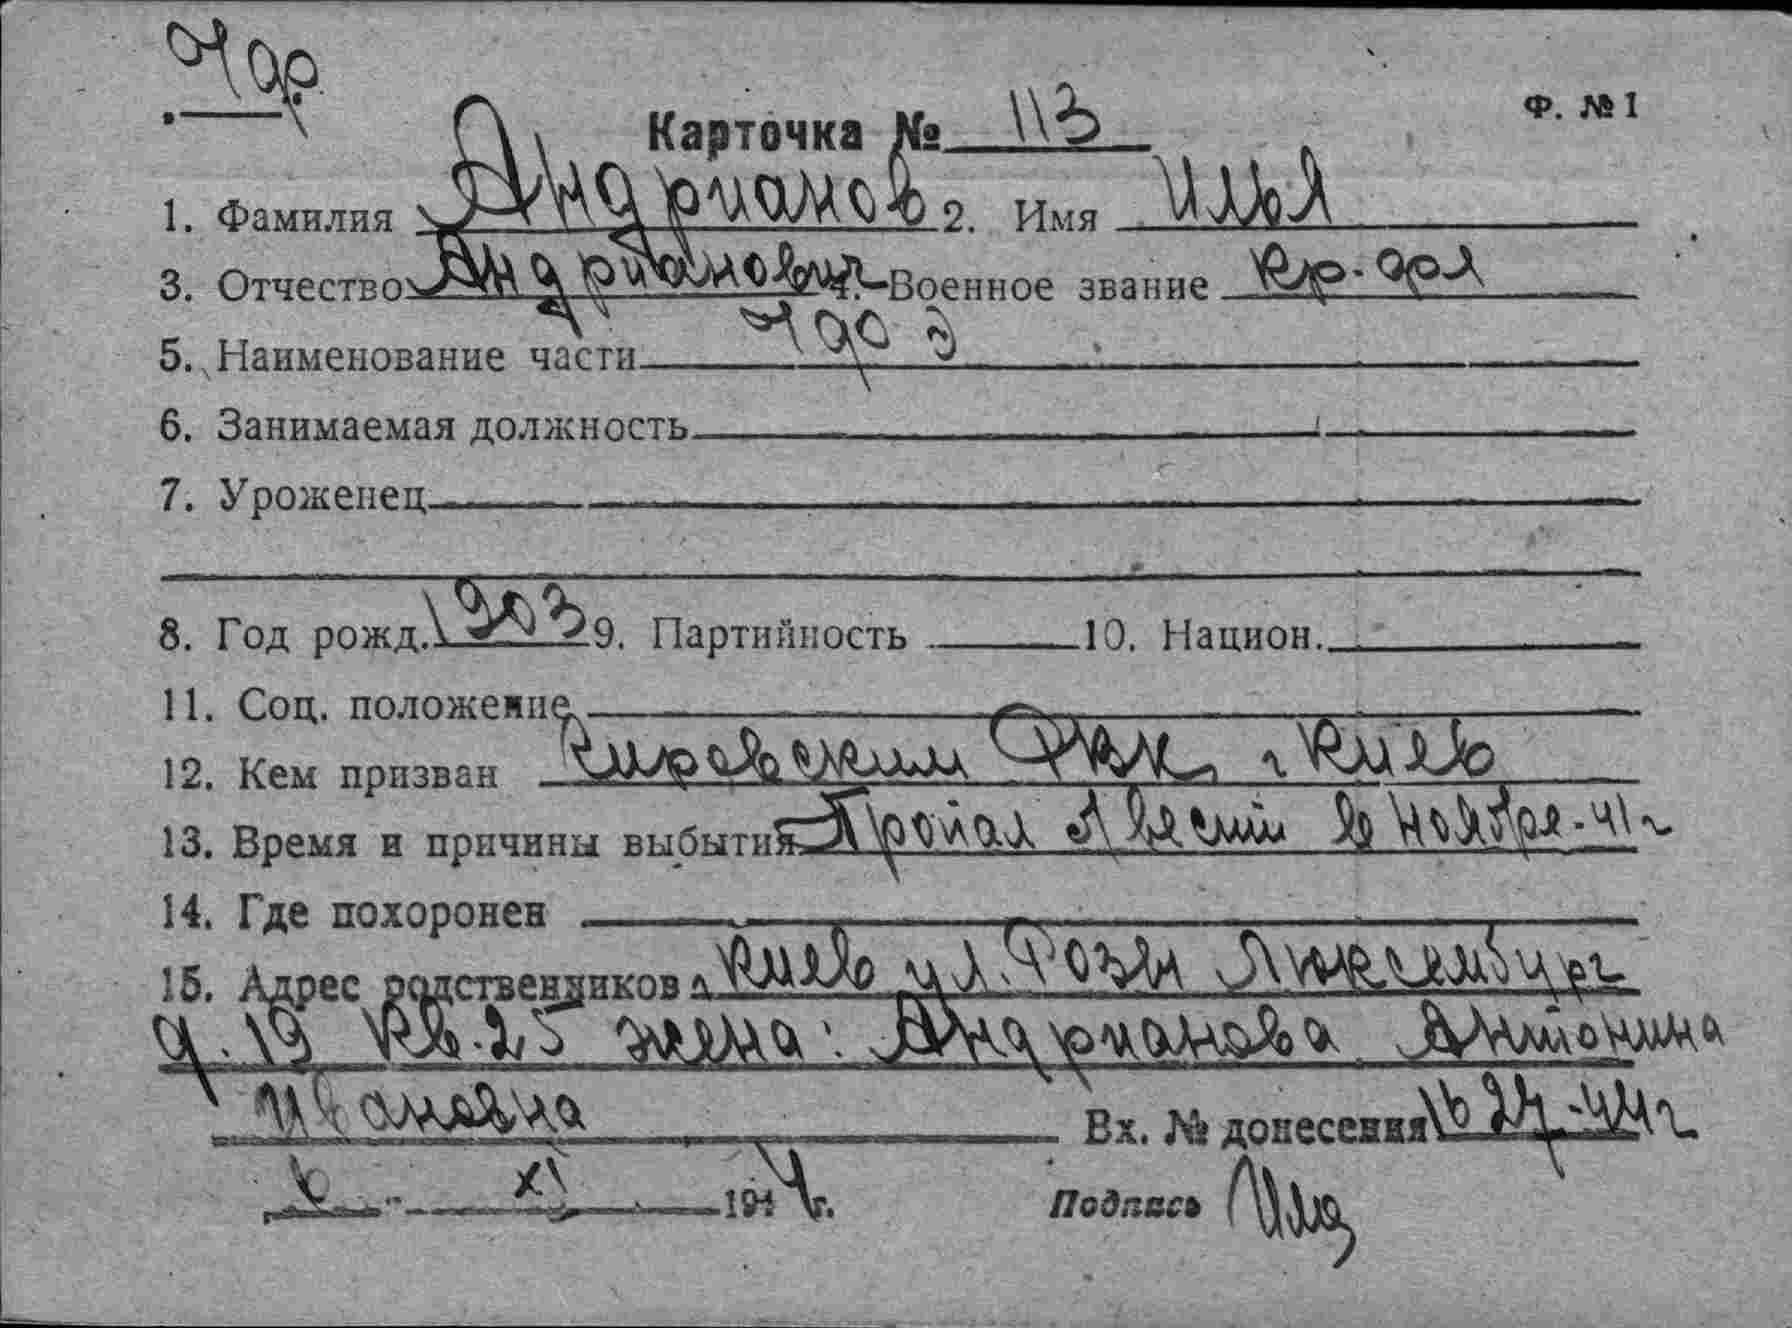 Ф. № 1
Карточка № 113
1. Фамилия Андрианов 2. Имя Илья
3. Отчество Андрианович 4. Военное звание кр-арл
5. Наименование части
6. Занимаемая должность
7. Уроженец
8. Год рожд. 1903 9. Партийность 10. Национ.
11. Соц. положение
12. Кем призван Кировским РВК, г Киев
13. Время и причины выбытия Пропал б/вести в ноябре-41г
14. Где похоронен
15. Адрес родственников г. Киев ул. Розы Люксембург
д. 19 кв. 25 жена: Андрианова Антонина
Ивановна Вх. № донесения 1627-44г
6 XI 1944г. Подпись